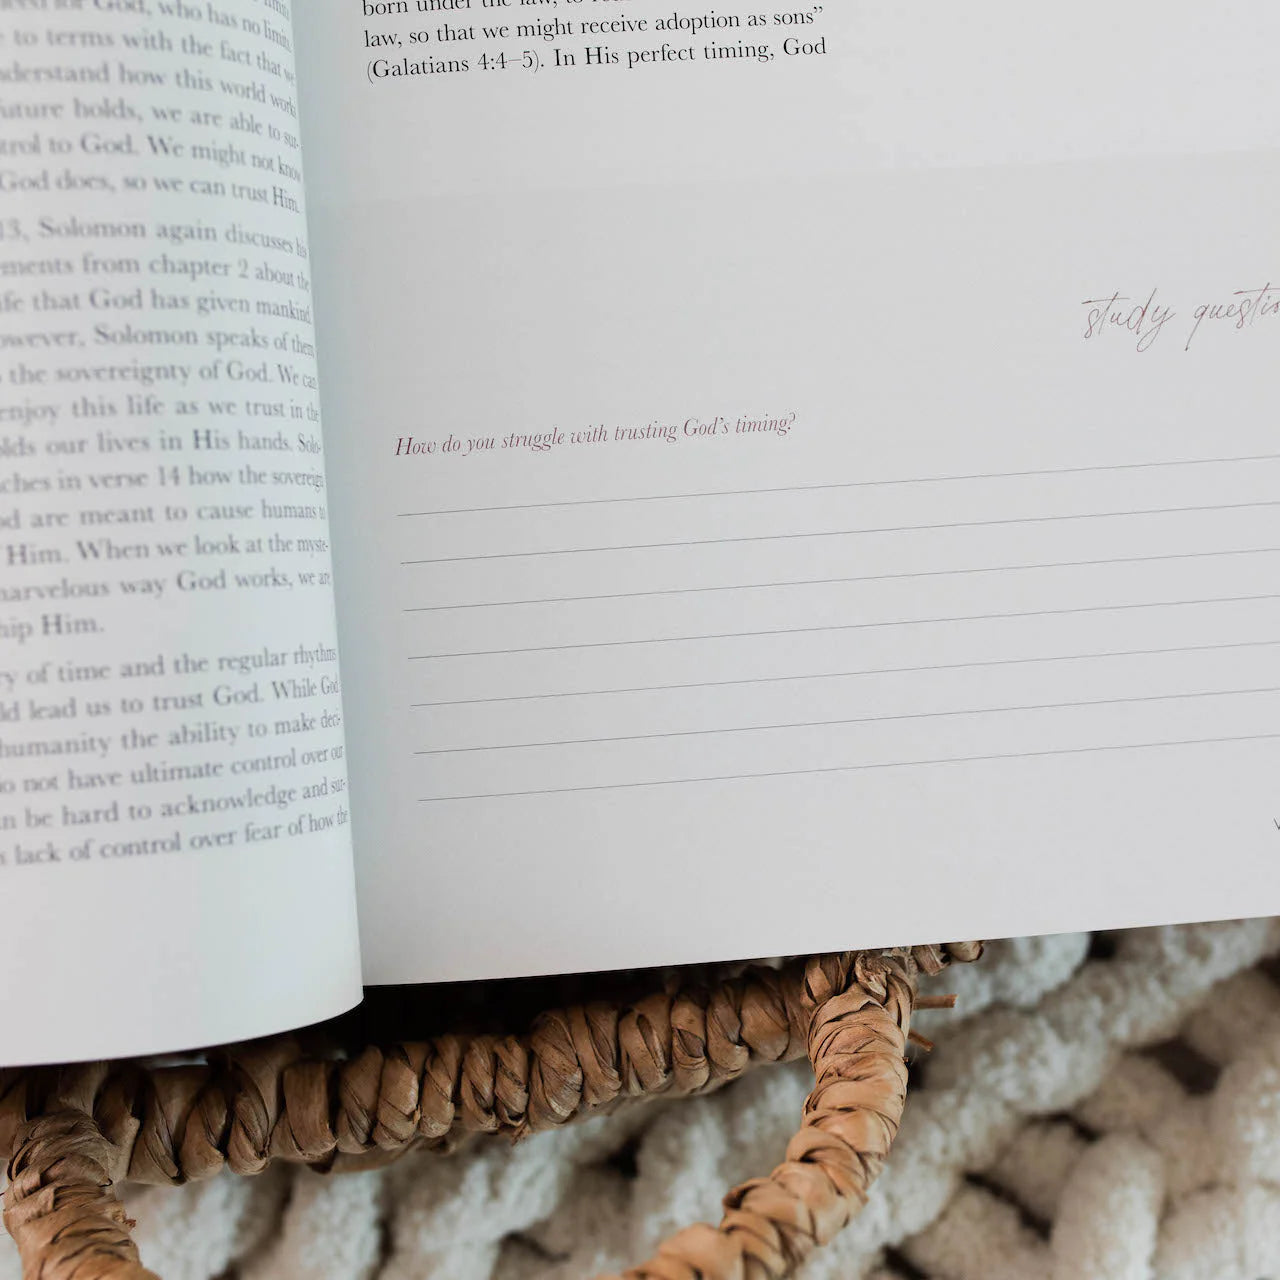 for God, who has no limits.
to terms with the fact that we
nderstand how this world works
uture holds, we are able to sur-
trol to God. We might not know
God does, so we can trust Him.
13, Solomon again discusses his
ments from chapter 2 about the
ife that God has given mankind.
owever, Solomon speaks of them
the sovereignty of God. We can
enjoy this life as we trust in the
olds our lives in His hands. Solo-
ches in verse 14 how the sovereign
od are meant to cause humans to
Him. When we look at the myste-
marvelous way God works, we are
hip Him.
y of time and the regular rhythms
ld lead us to trust God. While God
humanity the ability to make deci-
o not have ultimate control over our
n be hard to acknowledge and sur-
s lack of control over fear of how the
born under the law, to
law, so that we might receive adoption as sons”
(Galatians 4:4–5). In His perfect timing, God
study questio
How do you struggle with trusting God’s timing?